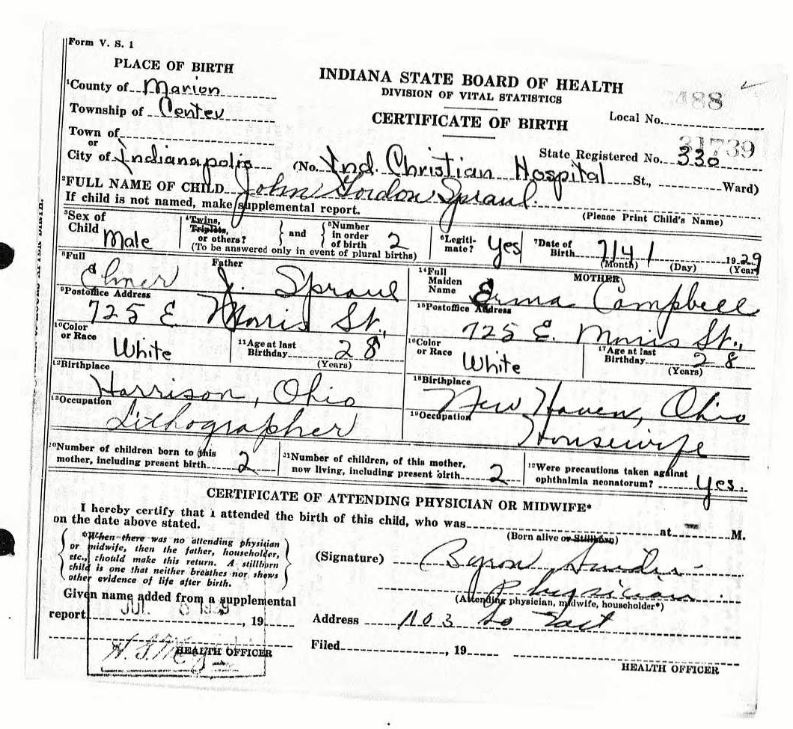 Form V. S. 1
PLACE OF BIRTH
INDIANA STATE BOARD OF HEALTH
DIVISION OF VITAL STATISTICS
CERTIFICATE OF BIRTH
County of Marion
Township of Center
Town of
or
City of Indianapolis
488
Local No.
31739
State Registered No. 330
(No. Ind. Christian Hospital St., Ward)
2FULL NAME OF CHILD John Gordon Spraul.
If child is not named, make supplemental report. (Please Print Child's Name)
3Sex of Child Male
4Twins, Triplets, or others? } and { 5Number in order of birth 2
(To be answered only in event of plural births)
6Legitimate? Yes
7Date of Birth 7/4/ 1929
(Month) (Day) (Year)
8Full Father
Elmer J. Spraul
9Postoffice Address
725 E Morris St.,
10Color or Race White
11Age at last Birthday 28
(Years)
12Birthplace
Harrison, Ohio
13Occupation
Lithographer
14Full Maiden Name MOTHER
Erma Campbell
15Postoffice Address
725 E. Morris St.,
16Color or Race White
17Age at last Birthday 28
(Years)
18Birthplace
New Haven, Ohio
19Occupation
Housewife
20Number of children born to this mother, including present birth 2
21Number of children, of this mother, now living, including present birth 2
22Were precautions taken against ophthalmia neonatorum? yes.
CERTIFICATE OF ATTENDING PHYSICIAN OR MIDWIFE*
I hereby certify that I attended the birth of this child, who was at M.
on the date above stated. (Born alive or Stillborn)
*When there was no attending physician
or midwife, then the father, householder,
etc., should make this return. A stillborn
child is one that neither breathes nor shows
other evidence of life after birth.
(Signature) Byron
Physician.
(Attending physician, midwife, householder*)
Given name added from a supplemental
report , 19
JUL 8 1929
HEALTH OFFICER
Address 1103 So East
Filed , 19
HEALTH OFFICER